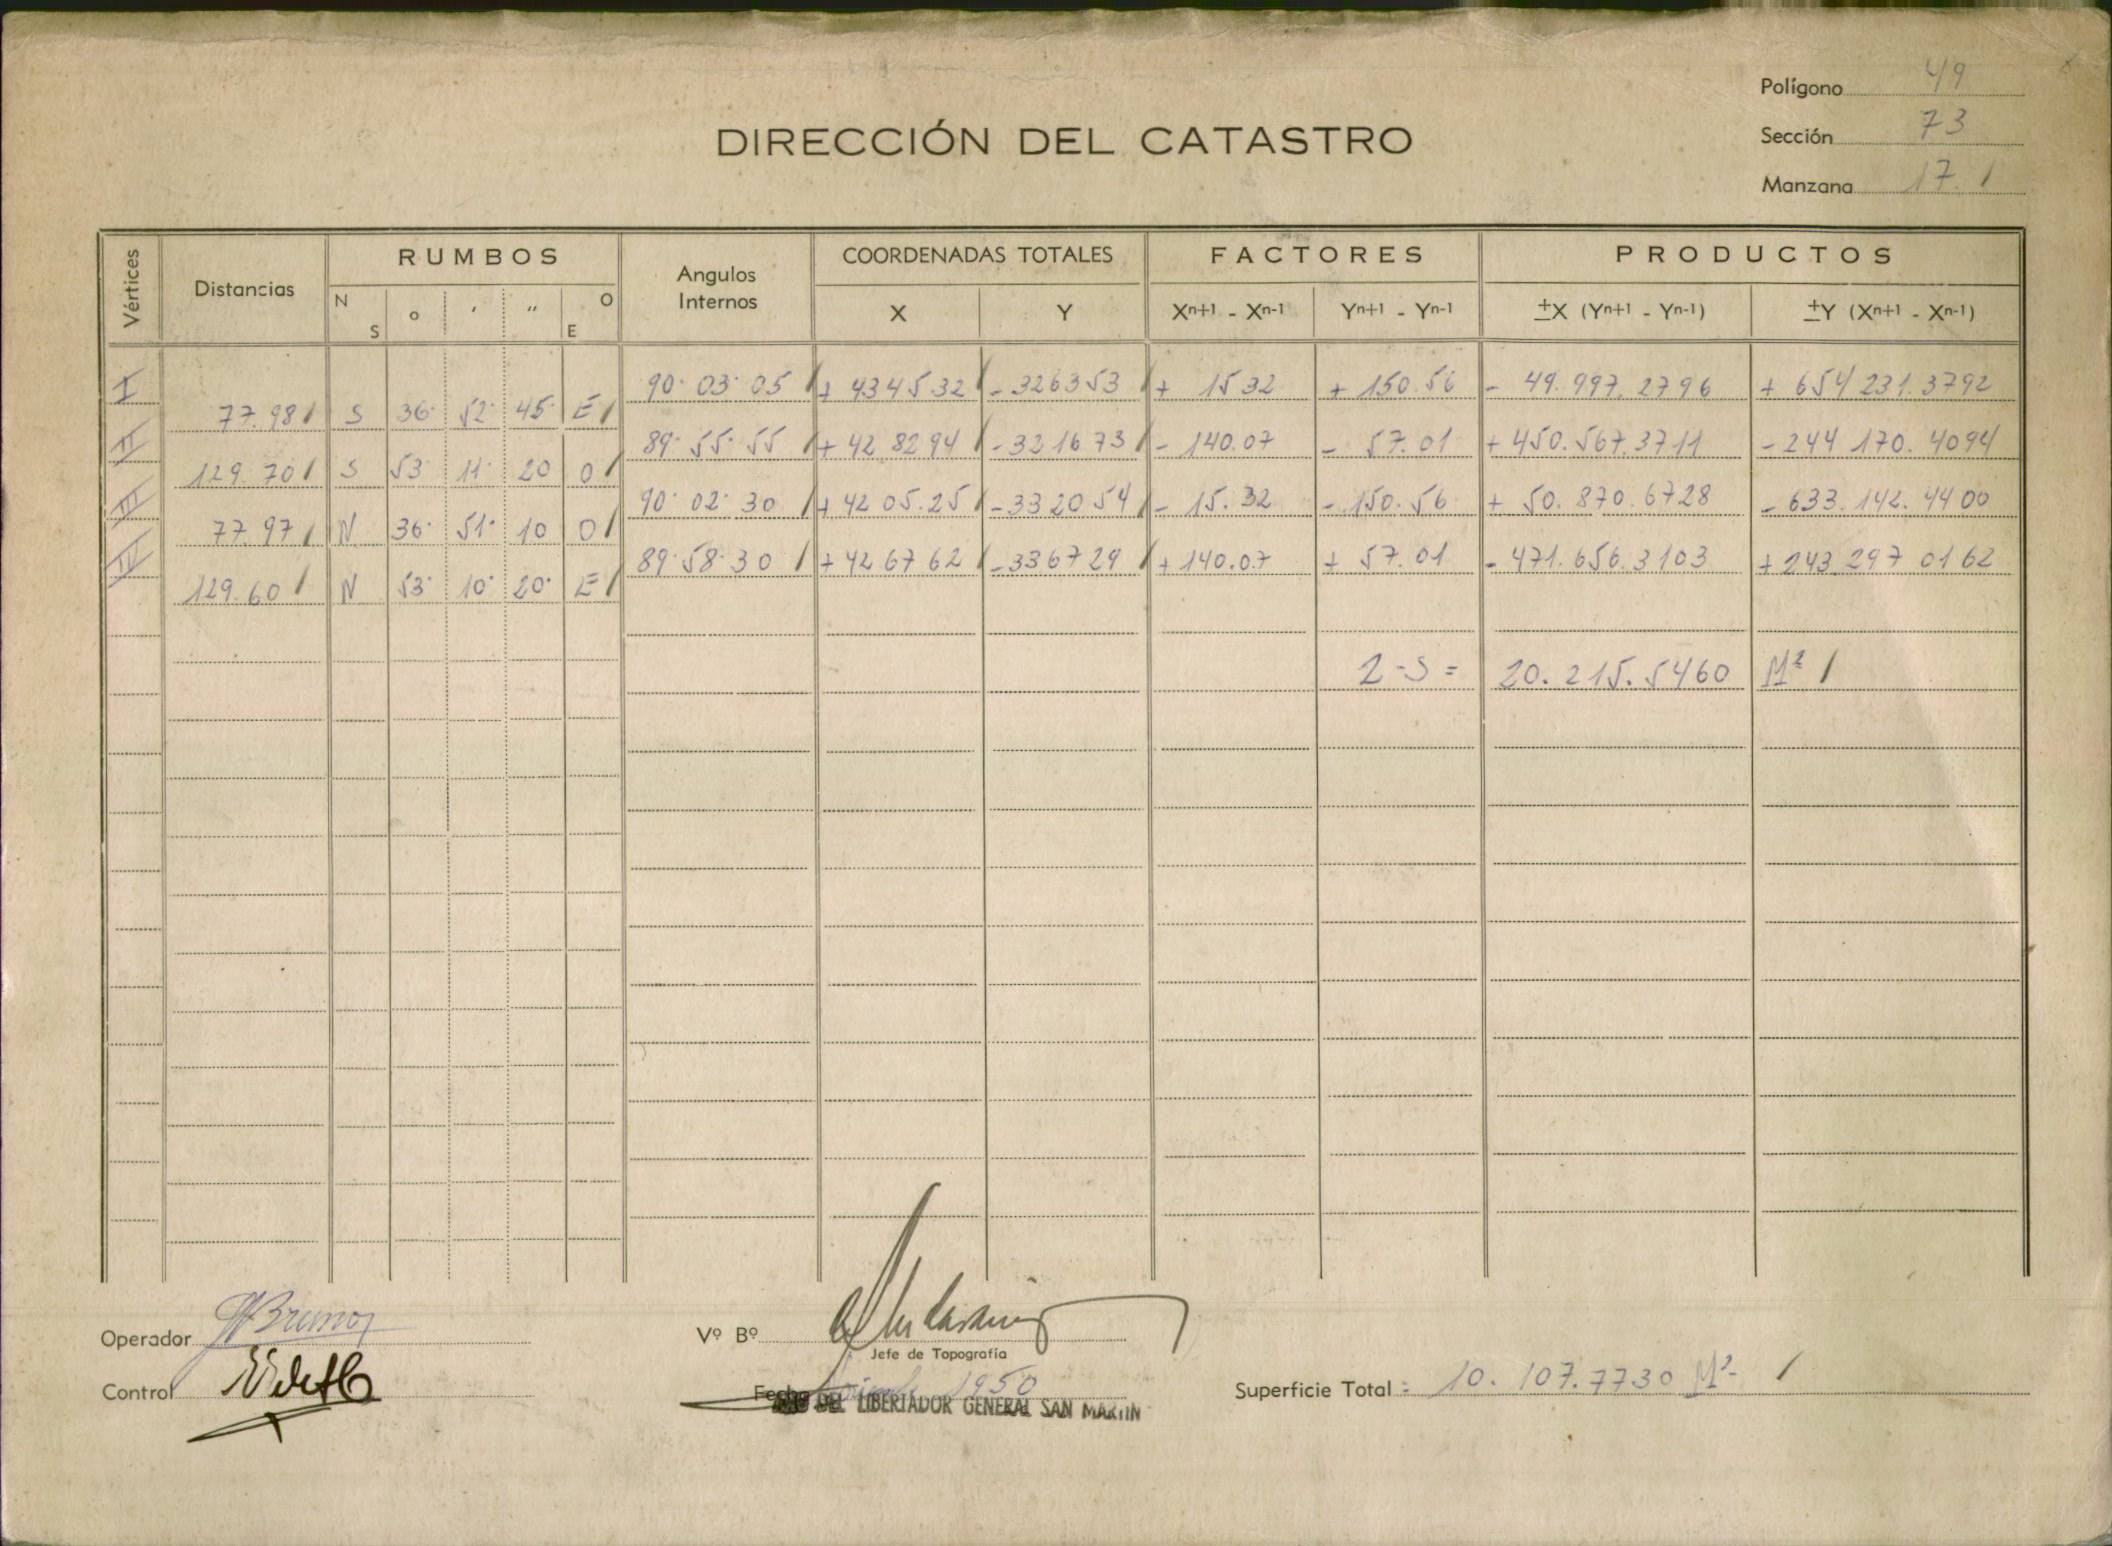 Polígono 49
DIRECCIÓN DEL CATASTRO
Sección 73
Manzana 17. /
Vértices Distancias RUMBOS Angulos Internos COORDENADAS TOTALES FACTORES PRODUCTOS
N S o ' " O E X Y Xn+1 - Xn-1 Yn+1 - Yn-1 ±X (Yn+1 - Yn-1) ±Y (Xn+1 - Xn-1)
I 90· 03· 05 / + 4345 32 / - 3263 53 / + 15 32 + 150.56 - 49.997.2796 + 654 231.3792
77.98 / S 36· 52· 45· E /
II 89· 55· 55 / + 42 82 94 / - 32 16 73 / - 140.07 - 57.01 + 450.567.3711 - 244 170.4094
129.70 / S 53· 11· 20 O /
III 90· 02· 30 / + 42 05.25 / - 33 20 54 / - 15.32 - 150.56 + 50.870.6728 - 633.142.4400
77.97 / N 36· 51· 10 O /
IV 89· 58· 30 / + 42 67 62 / - 33 67 29 / + 140.07 + 57.01 - 471.656.3103 + 243.297 0162
129.60 / N 53· 10· 20· E /
2 - S = 20.215.5460 M² /
Operador Bruno
Vº Bº
Jefe de Topografía
Control
Fecha 1950
DEL LIBERTADOR GENERAL SAN MARTIN
Superficie Total = 10.107.7730 M² /